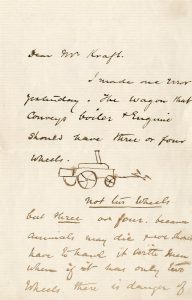 Dear Mr Kraft.
I made one Error
yesterday. The Wagon that
Conveys boiler & Engine
Should have three or four
Wheels.
not two Wheels
but three or four. because
animals may die
have to haul it with men
when if it was only two
Wheels there is danger of